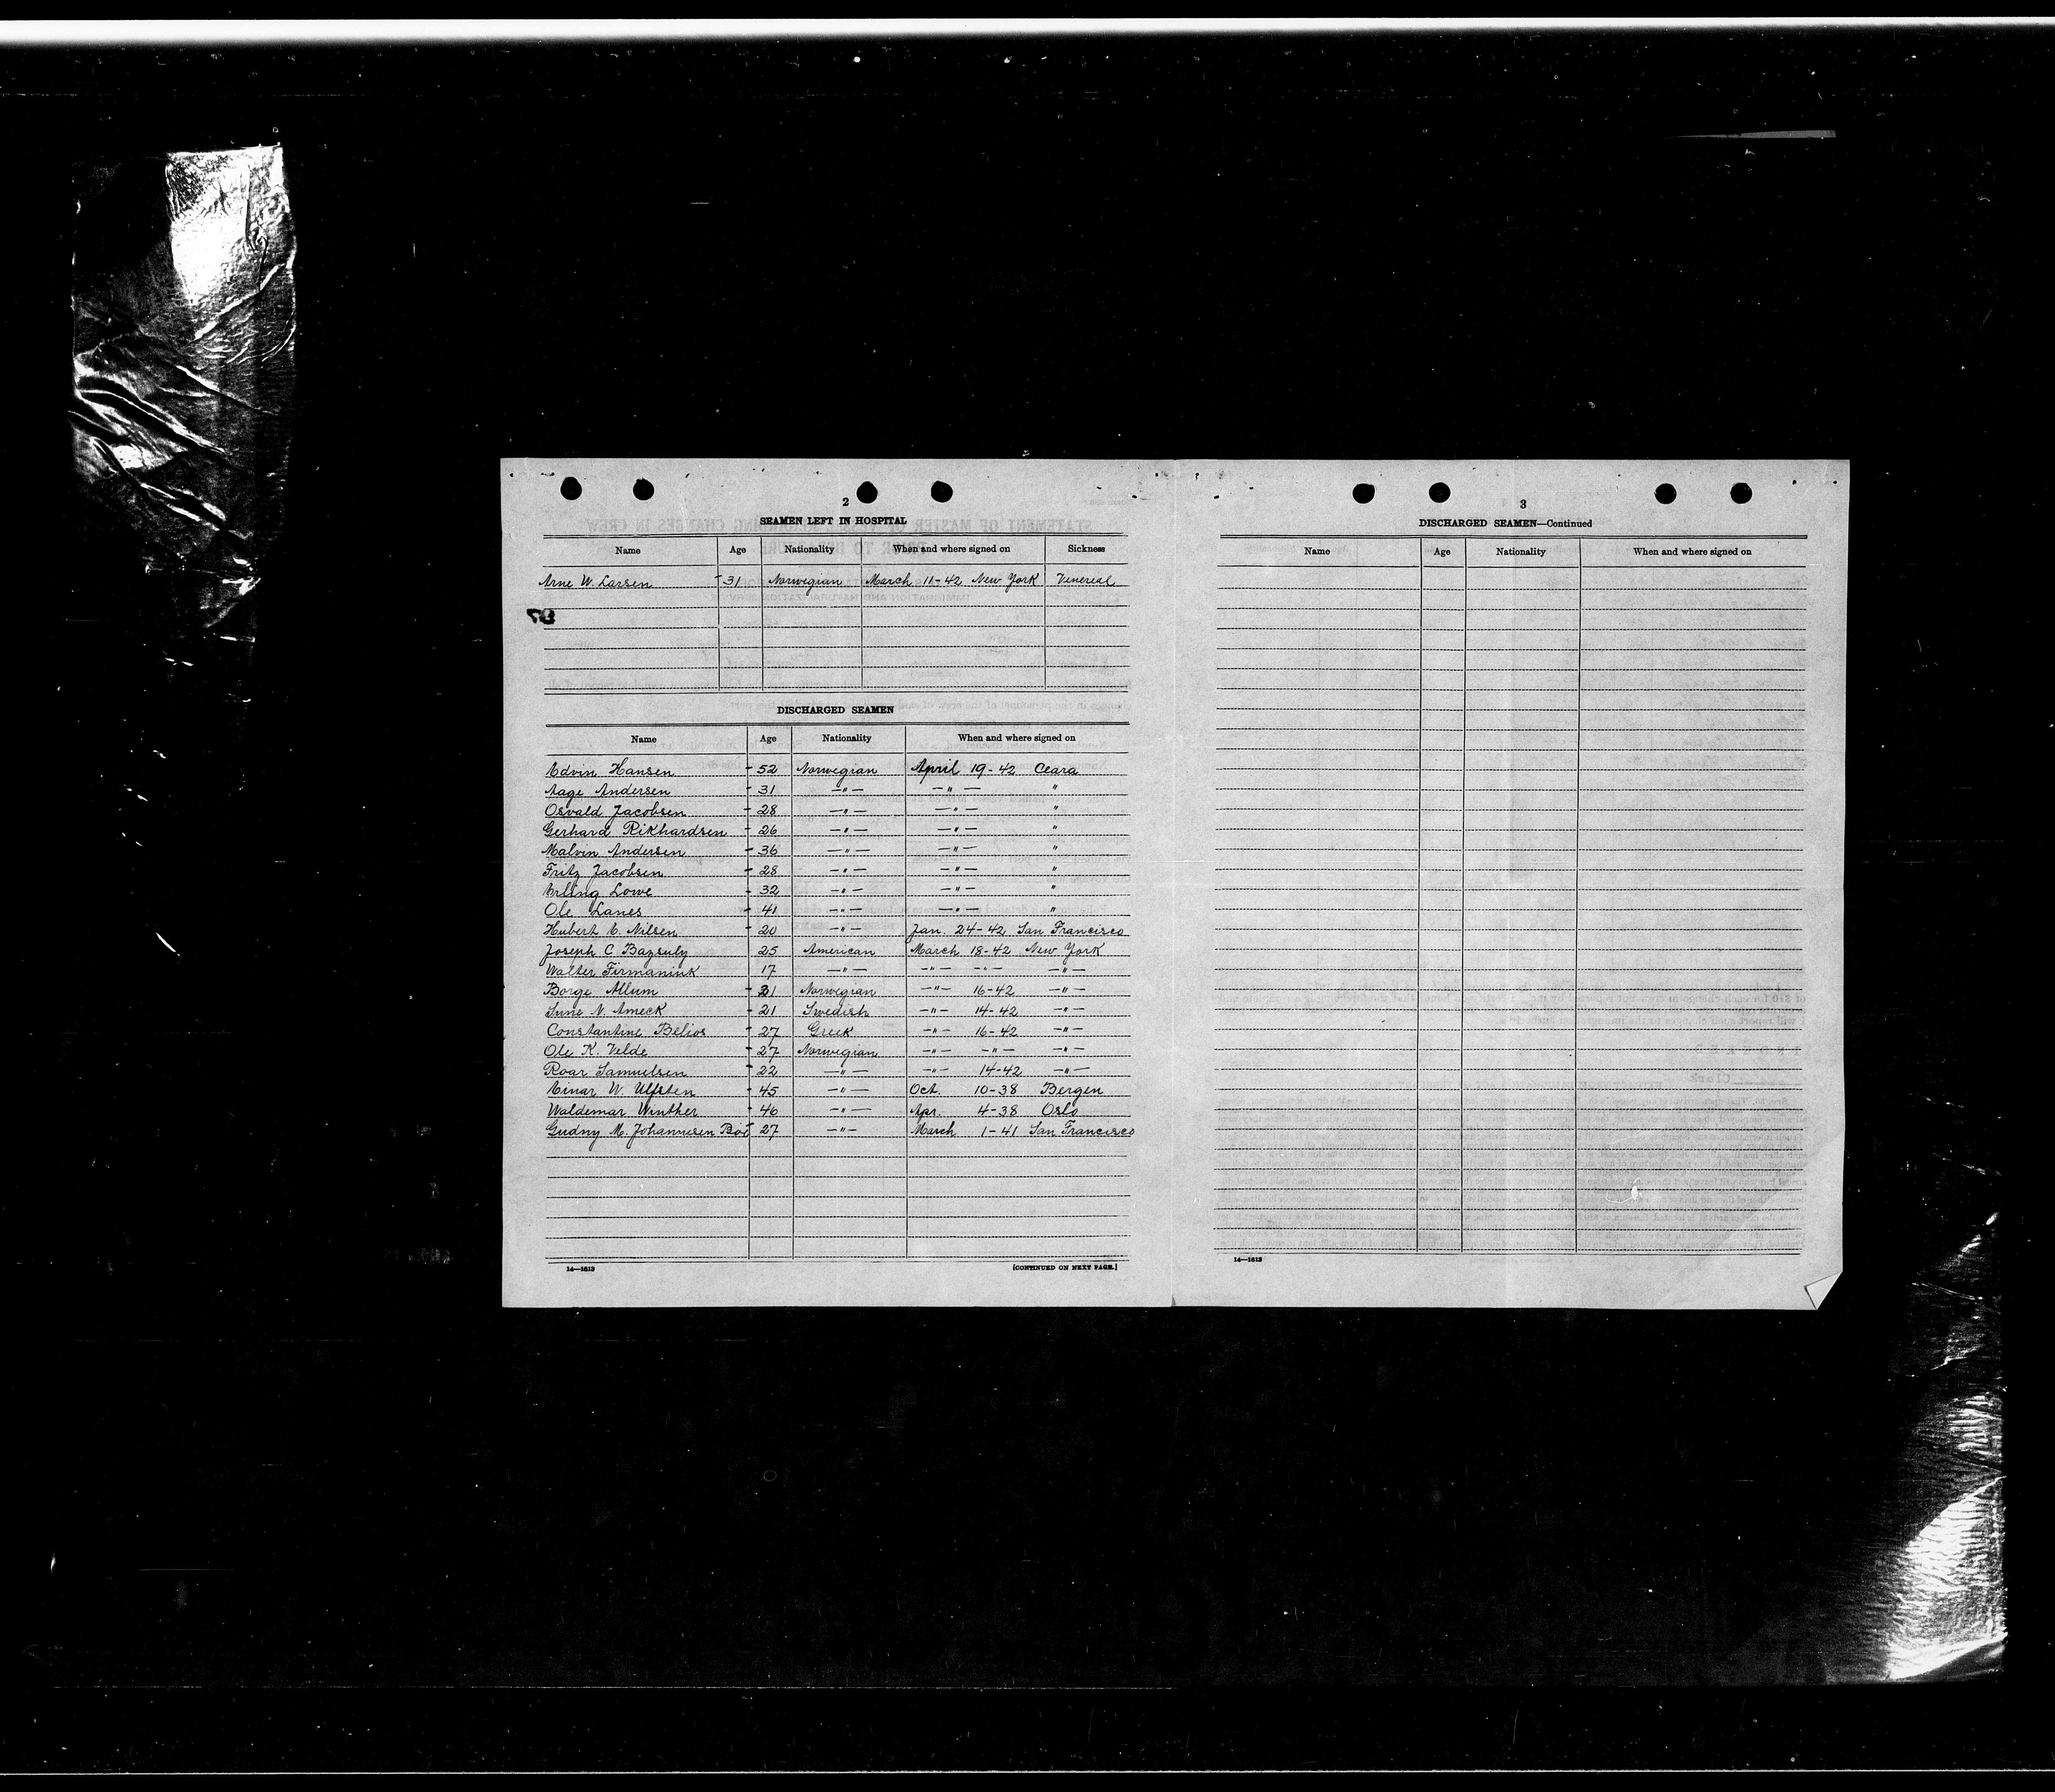 2
SEAMEN LEFT IN HOSPITAL
Name Age Nationality When and where signed on Sickness
Arne W. Larsen - 31 Norwegian March 11-42 New York Venereal
DISCHARGED SEAMEN
Name Age Nationality When and where signed on
Edvin Hansen - 52 Norwegian April 19-42 Ceara
Aage Andersen - 31 —"— —"— "
Osvald Jacobsen - 28 —"— —"— "
Gerhard Rikhardsen - 26 —"— —"— "
Malvin Andersen - 36 —"— —"— "
Fritz Jacobsen - 28 —"— —"— "
Erling Lowe - 32 —"— —"— "
Ole Lanes - 41 —"— —"— "
Hubert E. Nilsen - 20 —"— Jan. 24-42 San Francisco
Joseph C Bazsuly 25 American March 18-42 New York
Walter Firmanink 17 —"— —"— —"— —"—
Borge Allum - 31 Norwegian —"— 16-42 —"—
Sune N. Ameck - 21 Swedish —"— 14-42 —"—
Constantine Belios - 27 Greek —"— 16-42 —"—
Ole K. Velde - 27 Norwegian —"— —"— —"—
Roar Samuelsen - 22 —"— —"— 14-42 —"—
Einar W. Ulfsten - 45 —"— Oct. 10-38 Bergen
Waldemar Winther - 46 —"— Apr. 4-38 Oslo
Gudny M. Johannesen Boe - 27 —"— March 1-41 San Francisco
14—1613 [CONTINUED ON NEXT PAGE.]
3
DISCHARGED SEAMEN—Continued
Name Age Nationality When and where signed on
14—1613